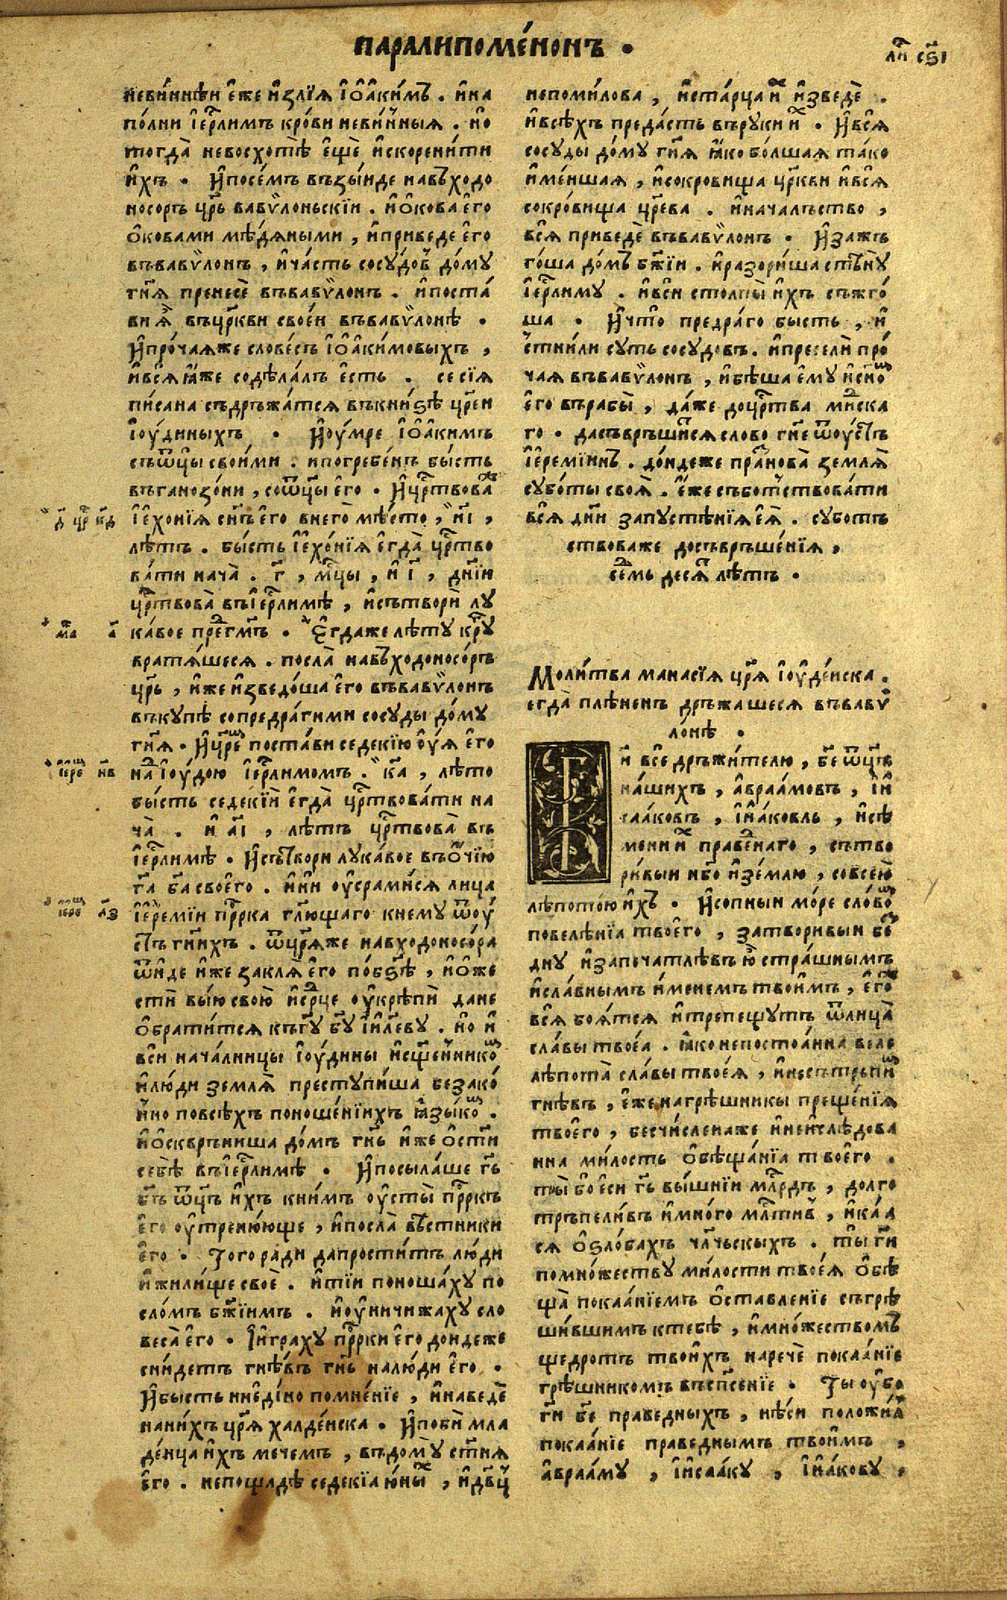 паралипоме́нонъ .
невѝннѣи є҆́же и҆злїѧ̀ і҆ѡ҆акѝмъ . и҆на
по́лни і҆ерⷭ҇лимъ кро́ви неви́нныѧ . но
тогда̀ невосхотѣ̀ є҆щѐ и҆скорени́ти
и҆́хъ . И҆посе́мъ възы́иде навъходо
носоръ цр҃ь вавѵло́ньскїи . и҆ѡ҆кова є҆го
ѡ҆ковами мѣ́дѧными , и҆приведе є҆го
въвавѵло́нъ , и҆ча́сть сосꙋ́дов до́мꙋ
гн҃ѧ пренесѐ въвавѵло́нъ . и҆поста́
ви ѧ҆̀ въцр҃кви свое́и въвавѵло́нѣ .
И҆про́чаѧже слове́съ і҆ѡ҆аки́мовыхъ ,
и҆всѧ̀ ꙗ҆́же содѣ́лалъ є҆сть . се сїѧ̀
пи́сана съдръжа́тсѧ въкни́ѕѣ цр҃еи
і҆оу́диныхъ . И҆оу́мре і҆ѡ҆аки́мъ
съѿц҃ы свои́ми . и҆погребе́нъ бы́сть
въганозо́ни , соѿц҃ы є҆го . И҆црⷭ҇твова
і҆ехо́нїѧ сн҃ъ є҆го внего̀ мѣ́сто , и҃і ,
лѣ́тъ . бы́сть і҆ехо́нїѧ є҆гда̀ црⷭ҇тво
ва́ти нача̀ . г҃ , мцⷭ҇ы , и҆ і҃ , дн҃їи
црⷭ҇твова̀ въі҆ерⷭ҇лимѣ , и҆сътворѝ лꙋ
ка́вое преⷣ гмⷭ҇ъ . Є҆гдаже лѣ́тꙋ крꙋ
вратѧ́шесѧ . посла̀ навъходоносо́ръ
цр҃ь , и҆́же и҆зведо́ша є҆го въвавѵло́нъ
въкꙋ́пѣ сопредраги́ми сосꙋ́ды до́мꙋ
гн҃ѧ . И҆цр҃ѐ поста́ви седекі́ю оу́ѧ є҆го
наⷣ і҆оу́дою і҆ерⷭ҇лимомъ . к҃а , лѣ́то
бы́сть седекі́и є҆гда̀ црⷭ҇твова́ти на
ча̀ . и҆ а҃і , лѣ́тъ црⷭ҇твова̀ въ
і҆ерⷭ҇лимѣ . И҆сътвори лꙋка́вое въѻ҆чїю
гⷭ҇а бг҃а своего̀ . и҆ни оу҆срами́сѧ лица
і҆ереміи прⷪ҇рка гл҃ющаго кнемꙋ ѿоу́
стъ гн҃ихъ . ѿцр҃ѧже навходоносо́ра
ѿи́де и҆́же заклѧ̀ є҆го по́бѕѣ , и҆ѡ҆же
стѝ вы́ю свою̀ и҆срⷣце оу҆крѣпѝ дане
ѡ҆брати́тсѧ къгꙋ бг҃ꙋ і҆и҃левꙋ . но и҆
всѝ нача́лницы і҆оу́дины и҆сщ҃е́нникоⷨ
и҆лю́ди землѧ̀ престꙋпи́ша безако́
нно повсѣ́хъ поноше́нїихъ ꙗ҆зыкоⷨ .
и҆ѡ҆скве́рниша до́мъ гн҃ь и҆́же ѡ҆стѝ
себѣ̀ въі҆ерⷭ҇лимѣ . И҆посыла́ше гь
бг҃ъ ѿц҃ъ и҆́хъ книмъ оу҆сты̀ прⷪ҇ркъ
є҆го оу҆треню́юще , и҆посла̀ вѣ́стники
є҆го . Того ради дапрости́тъ лю́ди
и҆жили́ще своѐ . и҆ті́и поноша́хꙋ по
сло́мъ бж҃їимъ . и҆оу҆ничижа́хꙋ сло
веса̀ є҆го . І҆и҆гра́хꙋ прⷪ҇рки є҆го дондеже
сни́детъ гнѣ́въ гн҃ь налю́ди є҆го .
И҆бысть ниеді́но помне́нїе , и҆наведѐ
нани́хъ цр҃ѧ халде́иска . И҆побѝ мла
де́нца и҆́хъ мече́мъ , въдомꙋ̀ ст҃ѧ
є҆го . непощадѣ̀ седекі́а ю҆ны , и҆дв҃ц
непоми́лова , и҆ста́рца и҆ⷯ и҆зведѐ .
и҆всѣ́хъ преда́сть върꙋки и҆ⷯ . И҆всѧ̀
сосꙋды до́мꙋ гн҃ѧ ꙗ҆́ко бо́лшаѧ та́ко
и҆ме́ншаѧ , и҆сокро́вища цр҃кви и҆всѧ̀
сокро́вища цр҃ева . и҆нача́лъство ,
всѧ̀ приведѐ въвавѵло́нъ . И҆зажъ
го́ша до́мъ бж҃їи . и҆разори́ша стѣ́нꙋ
і҆ерⷭ҇лимꙋ . и҆всѝ столпы̀ и҆́хъ съжго́
ша . И҆что̀ предра́го бысть , и҆
стни́ли сꙋть сосꙋдовъ . и҆преселѝ про́
чаѧ въвавѵло́нъ , и҆бѣ́ша є҆мꙋ и҆сн҃оⷨ
є҆го върабы̀ , да́же доцрⷭ҇тва миⷣска
го . дасъвръши́тсѧ слово гн҃е ѿоу́стъ
і҆еремі́инъ . до́ндеже пра́знова̀ землѧ̀
сꙋбо́ты своѧ̀ . є҆́же съботⷭ҇твова́ти
всѧ̀ дн҃и запꙋстѣ́нїѧ є҆ѧ̀ . сꙋботъ
ствоваже досъвръше́нїѧ ,
се́дмь десѧⷮ лѣтъ .
Моли́тва манасі́ѧ цр҃ѧ і҆оуде́иска .
егда̀ плѣне́нъ дръжашесѧ въвавѵ
ло́нѣ .
Ги҃ вседръжи́телю , бе҃ ѿц҃ъ
на́шихъ , а҆враа́мовъ , і҆и
саа́ковъ , і҆и҆а́ковль , и҆сѣ́
мени и҆ⷯ праведⷩаго , сътво
ри́выи нб҃о и҆зе́млю , совсею̀
лѣ́потою и҆́хъ . И҆сопны́и мо́ре сло́воⷨ
повелѣ́нїѧ твоего̀ , затвори́выи бе́з
днꙋ и҆запечатлѣ́въ ю҆̀ стра́шнымъ
и҆сла́внымъ и҆менемъ твои́мъ , є҆гоⷤ
всѧ̀ боѧ́тсѧ и҆трепещꙋтъ ѿлица̀
сла́вы твоеа . ꙗ҆́ко непостоѧ́нна веле
лѣпота̀ сла́вы твоеѧ̀ , и҆несътрьпиⷨ
гнѣ́въ , є҆́же нагрѣ́шники преще́нїѧ
твоего̀ , бесчи́сленаже и҆неи́слѣдова
нна ми́лость ѡ҆бѣща́нїа твоего̀ .
ты̀ бо є҆си гь вы́шнїи млⷭ҇рдъ , до́лго
тръпели́въ и҆мно́го млⷭ҇тивъ , и҆ка́а
сѧ ѡ҆ѕло́бахъ чл҃чьскыхъ . ты гⷭ҇и
помно́жествꙋ ми́лости твоеѧ̀ ѡ҆бѣ
ща̀ покаа́нїемъ ѡ҆ставле́нїе съгрѣ
ши́вшимъ ктебѣ̀ , и҆мно́жествомъ
щедро́тъ твои́хъ наречѐ покаа́нїе
грѣ́шникомъ въспⷭ҇енїе . Ты оу҆бо
гⷭ҇и бе҃ пра́ведныхъ , нѣ́си положи́л
покаа́нїе пра́веднымъ твои́мъ ,
а҆враа́мꙋ , і҆и҆саа́кꙋ , і҆и҆а́ковꙋ ,